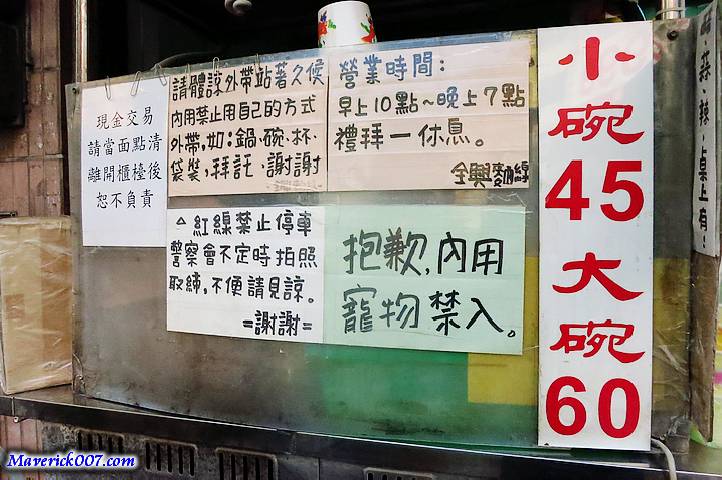 現金交易
請當面點清
離開櫃檯後
恕不負責
請體諒外帶站著久候
內用禁止用自己的方式
外帶,如:鍋、碗、杯、
袋裝,拜託、謝謝
營業時間:
早上10點~晚上7點
禮拜一休息。
全興麵線
△紅線禁止停車
警察會不定時拍照
取締,不便請見諒。
=謝謝=
抱歉,內用
寵物禁入。
小碗
45
大碗
60
蒜、辣、桌上有
Maverick007.com